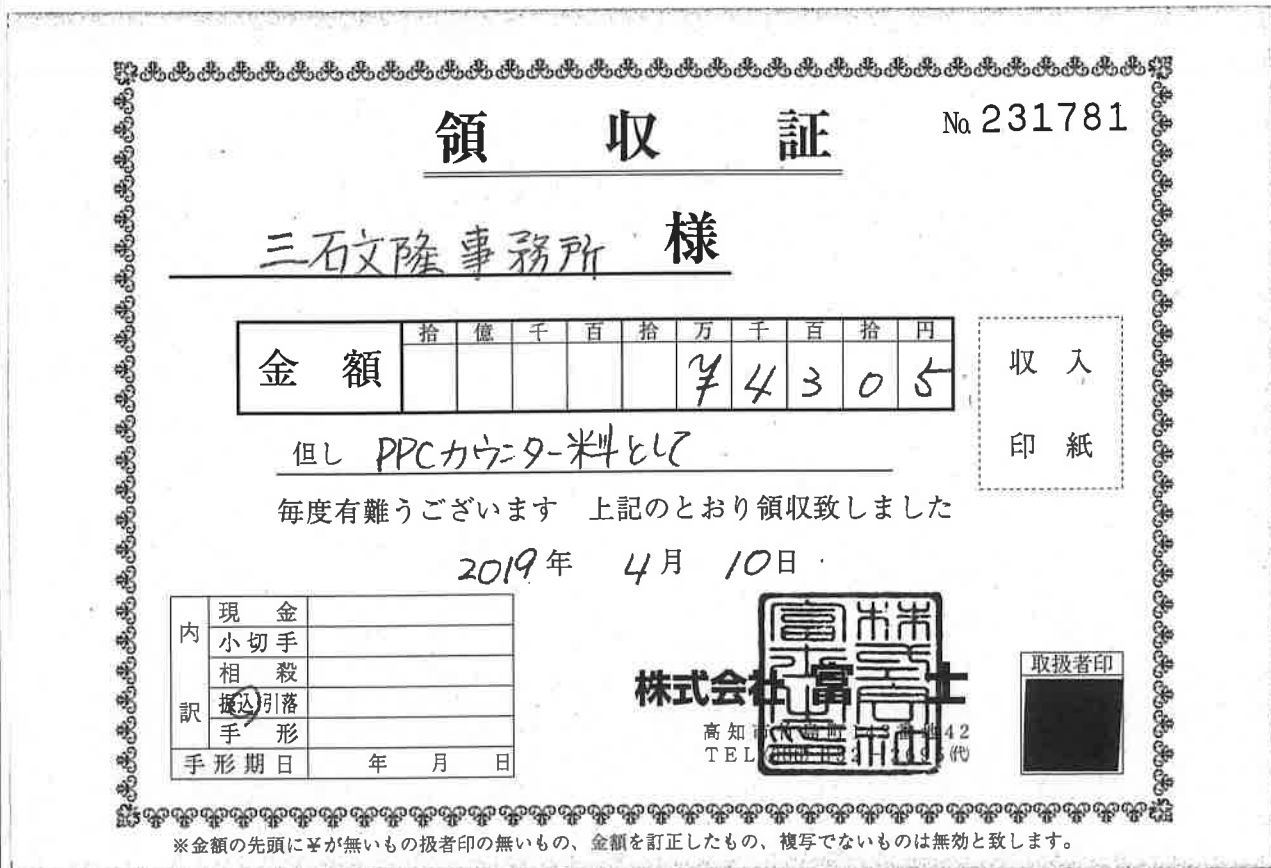 領収証
No. 231781
三石文隆事務所 様
拾 億 千 百 拾 万 千 百 拾 円
金額 ¥4305
収入
印紙
但し PPCカウンター料として
毎度有難うございます 上記のとおり領収致しました
2019年 4月 10日
内訳
現金
小切手
相殺
振込引落
手形
手形期日 年 月 日
株式会社 富士
高知市
42
TEL
(代)
取扱者印
※金額の先頭に¥が無いもの扱者印の無いもの、金額を訂正したもの、複写でないものは無効と致します。